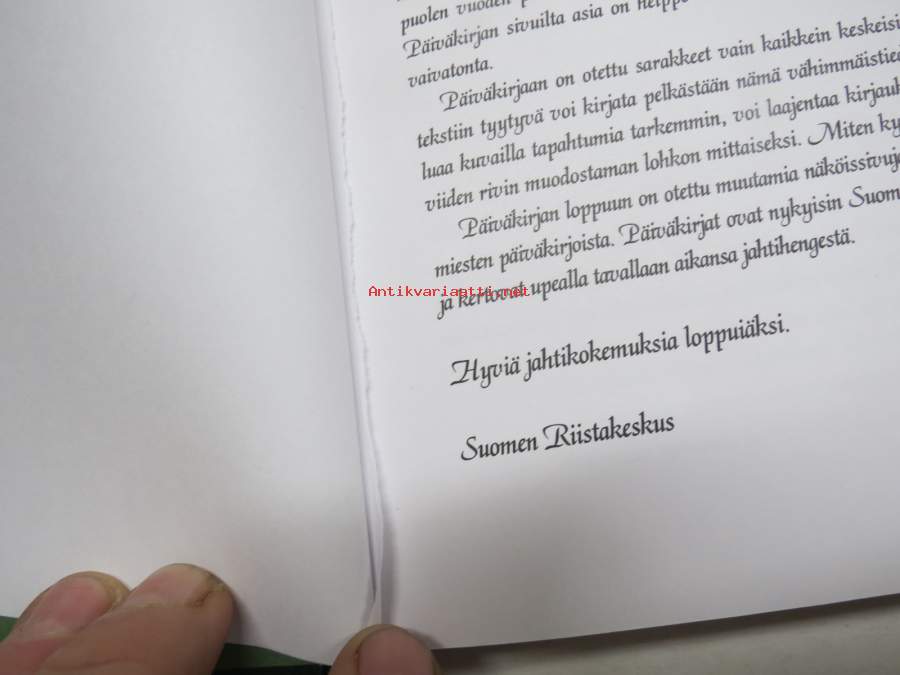 puolen vuoden
Päiväkirjan sivuilta asia on helppo
vaivatonta.
Päiväkirjaan on otettu sarakkeet vain kaikkein keskeisi
tekstiin tyytyvä voi kirjata pelkästään nämä vähimmäistied
luaa kuvailla tapahtumia tarkemmin, voi laajentaa kirjauk
viiden rivin muodostaman lohkon mittaiseksi. Miten ky
Päiväkirjan loppuun on otettu muutamia näköissivuja
miesten päiväkirjoista. Päiväkirjat ovat nykyisin Suom
ja kertovat upealla tavallaan aikansa jahtihengestä.
Antikvariaatti.net
Hyviä jahtikokemuksia loppuiäksi.
Suomen Riistakeskus